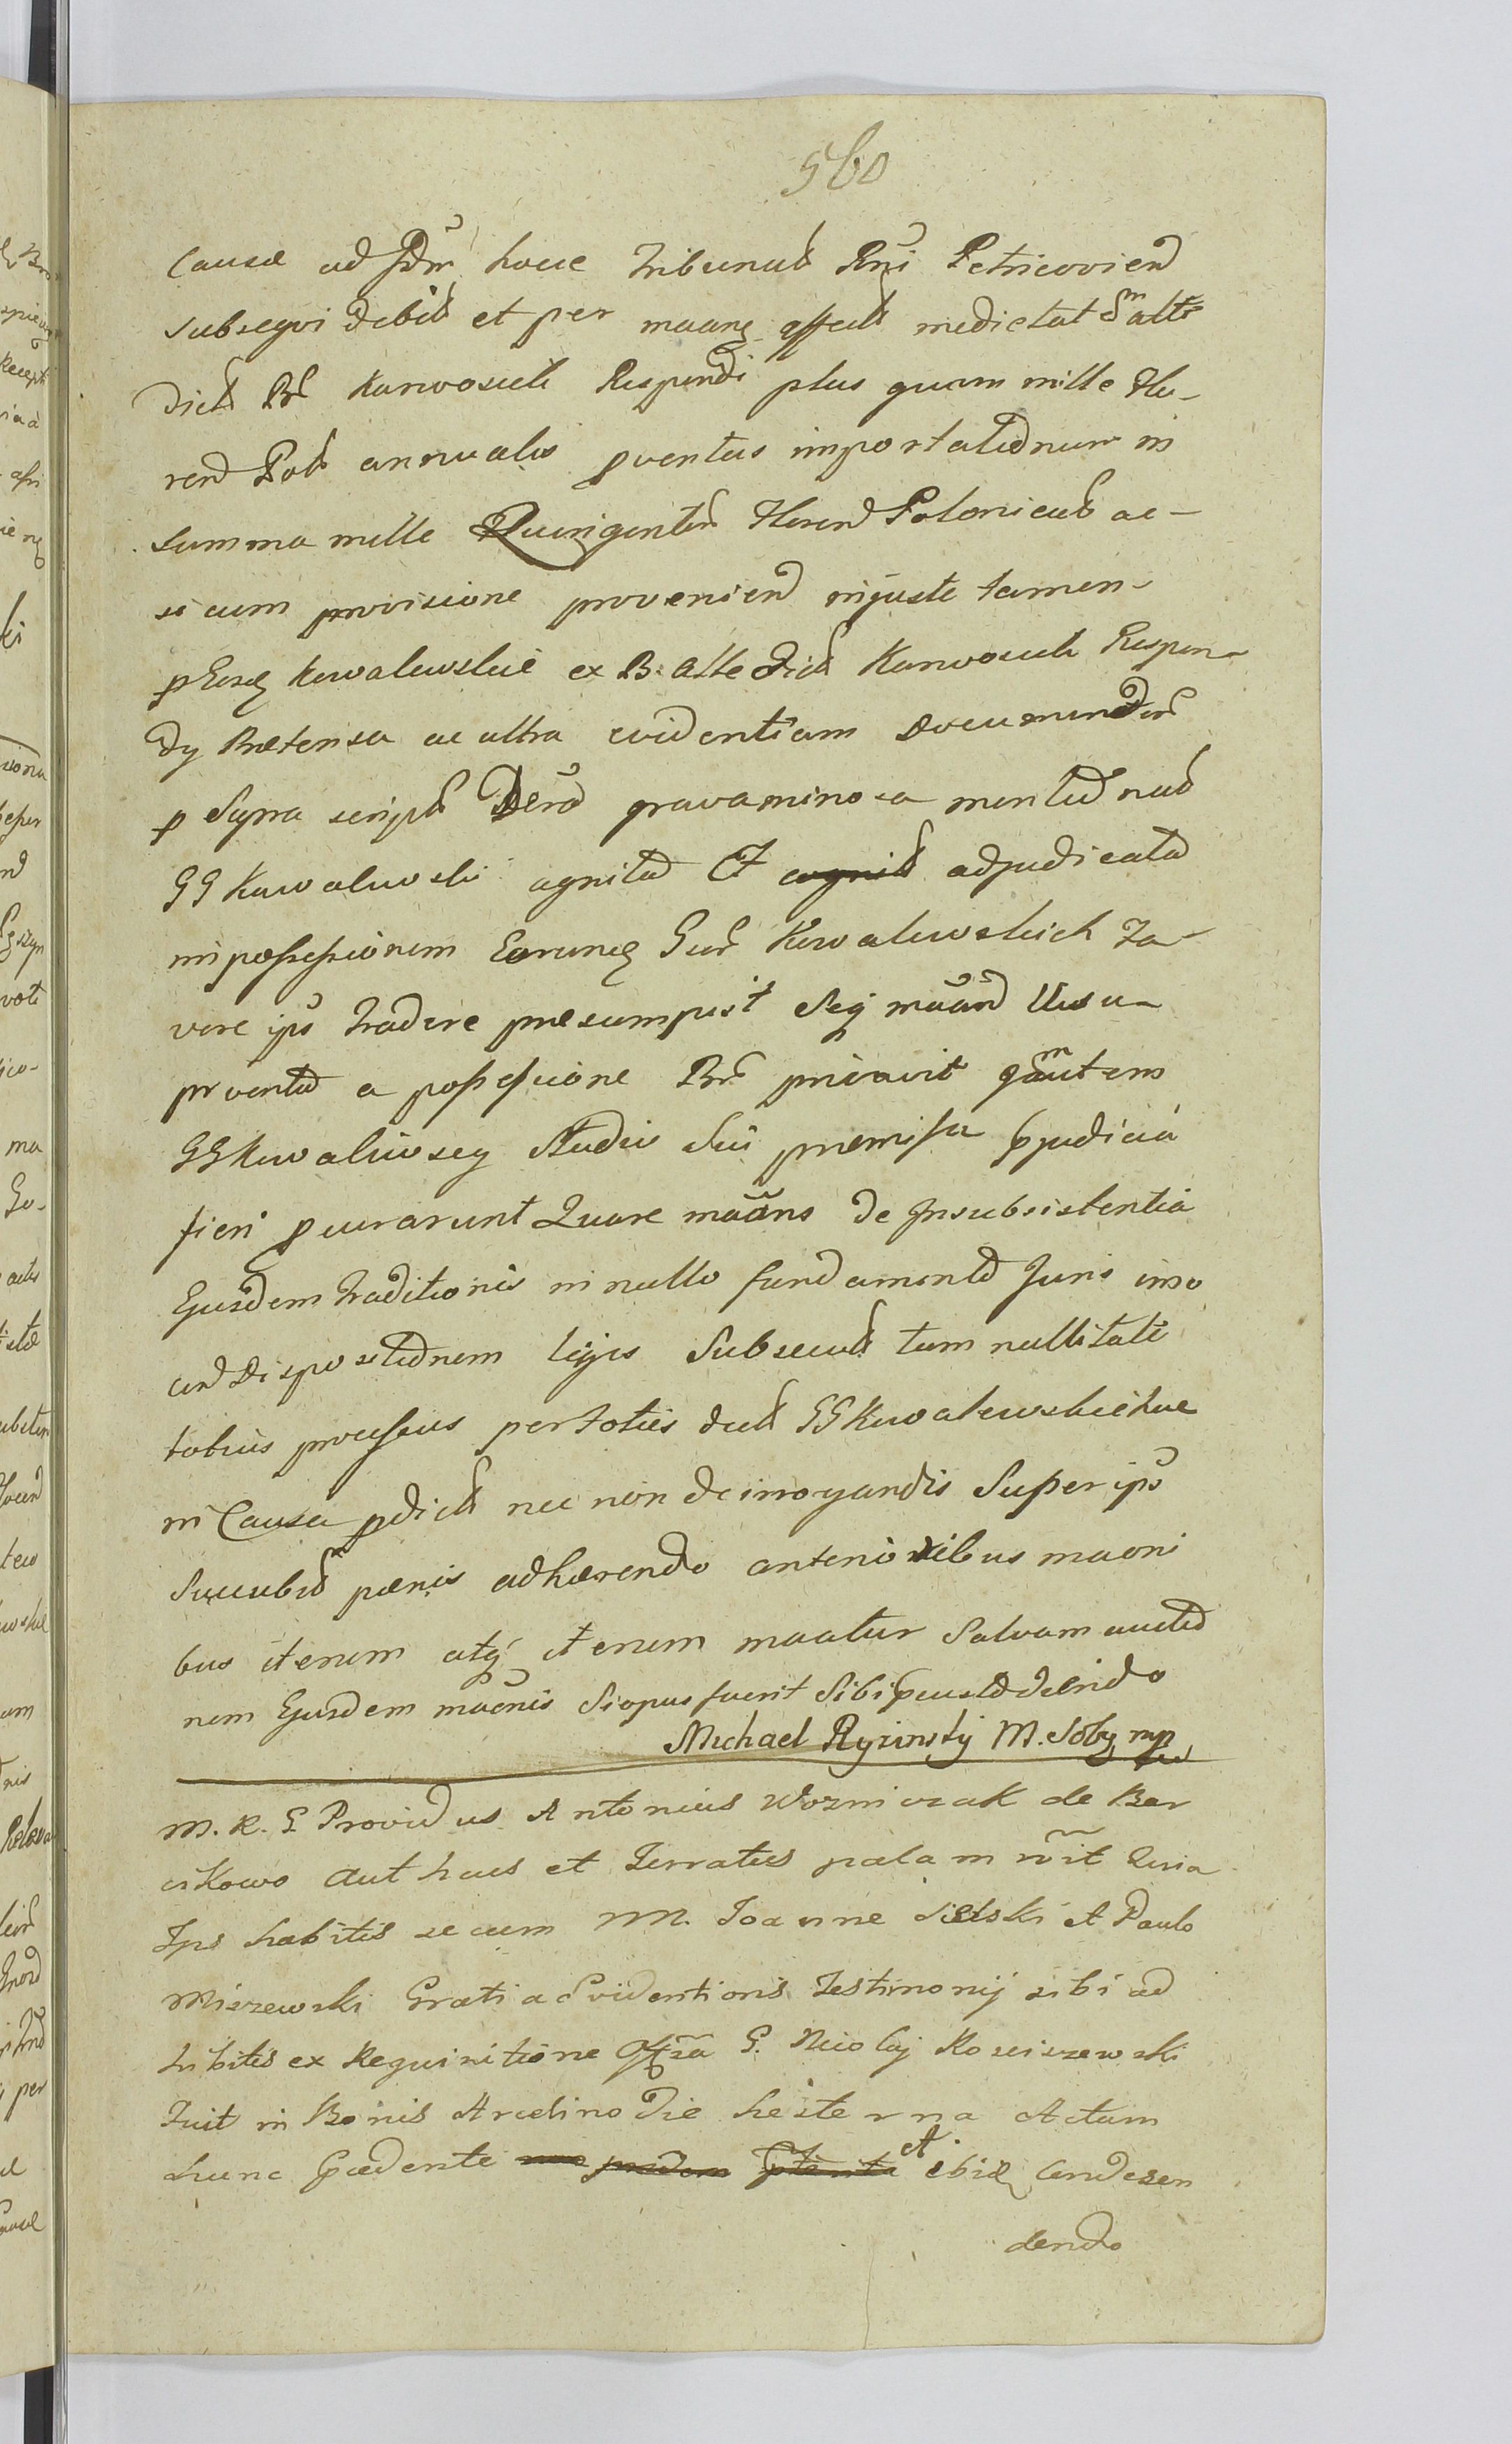 560
Causæ ad Jdm hocce Tribunal Rni Petricovien
subsequi debit et per maang effect medietat dm alte
dict Br Karwosieck Respondi plus quam mille Flo-
ren Pol annualis pventus importationum in
summa mille Quingentis Floren Polonical ac-
si cum provisione provenien injuste tamen
p Eosq Kowalewskie ex B. Alte dict Karwosieck Respon-
dy Prætensa ac ultra evidentiam Documendor
p Supra script Decrd gravaminosa mentionat
GG Kowalewski agnita Et cognit adjudicata
in possessionem Eorundq Gur Kowalewskich Fa-
vore ips tradere præsumpsit Seq maand Usu
proventu a possessione Br privavit qm autem
GG Kowaliwscy Studio sui præmissa pjudicia
fieri pcurarunt Quare maans de Insubsistentia
Ejusdem traditionis in nullo fundamento Juris imo
cnd dispositionem legis Subsecut tam nullitate
totius processus per toties dict GG Kowalewskichce
in Causa pdict nec non de irrogandis Super ips
Succubit pænis adhærendo anterioribus maoni
bus iterum atq iterum maatur Salvam auctio
nem Ejusdem maonis Si opus fuerit Sibi pcustodiendo
Michael Rysinsky M. Soby mp
M. R. G Providus Antonius Wozniczak de Bar
cikowo Authaus et Juratus palam rvit Quia
Ips habitis secum M. Joanne Sielski et Paulo
Miszewski Gratia Evidentioris Testimonij sibi ad
hibitis ex Requisitione Gsa G. Nicolaj Kosciszewski
Fuit in Bonis Arcelino Die hesterna Actum
hunc Pcedente et ibiq Condescen
dendo